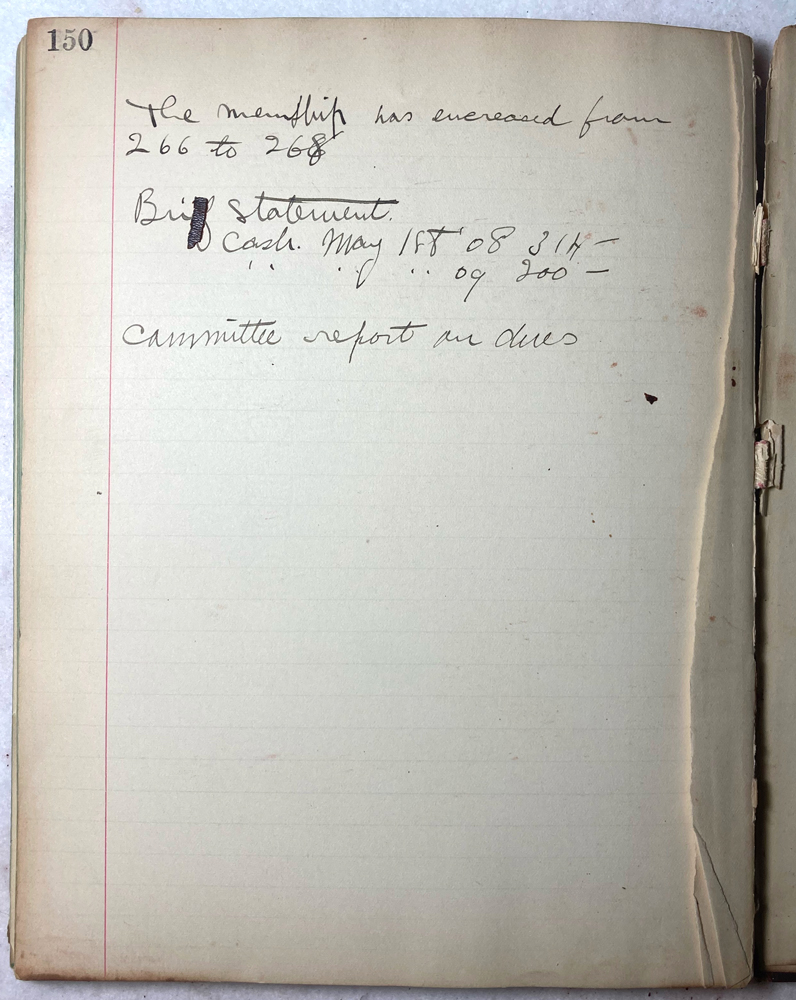 150
The memship has encreased from
266 to 268
Brief Statement.
Cash. May 1st '08 314 —
" " " 09 200 —
Committee report on dues